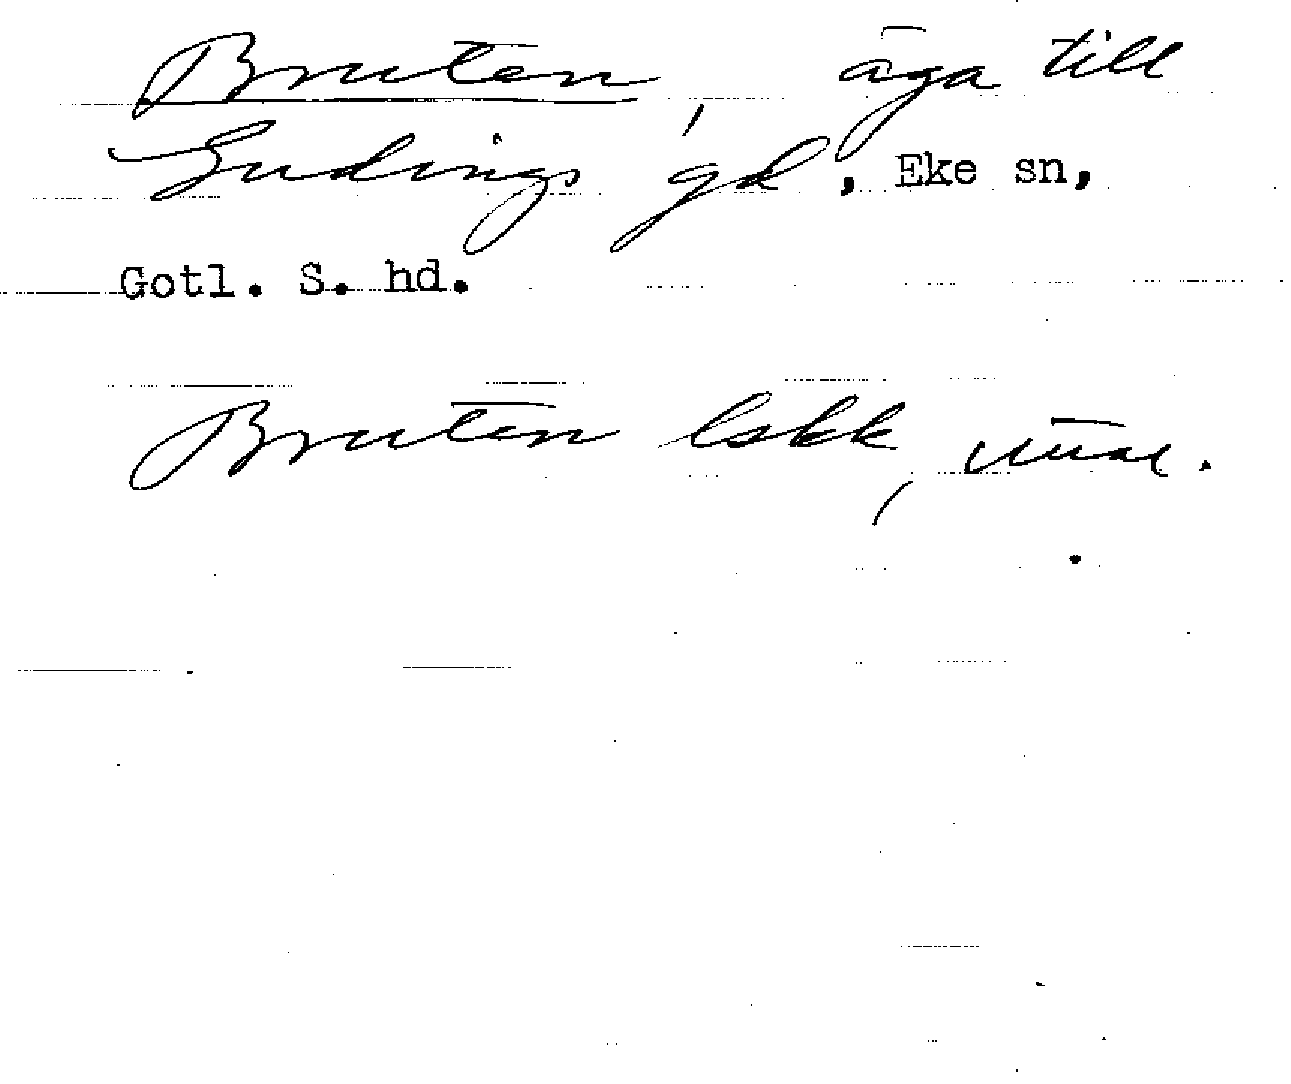 Bruten, äga till
Gudings gd, Eke sn,
Gotl. S. hd.
Bruten lskk,